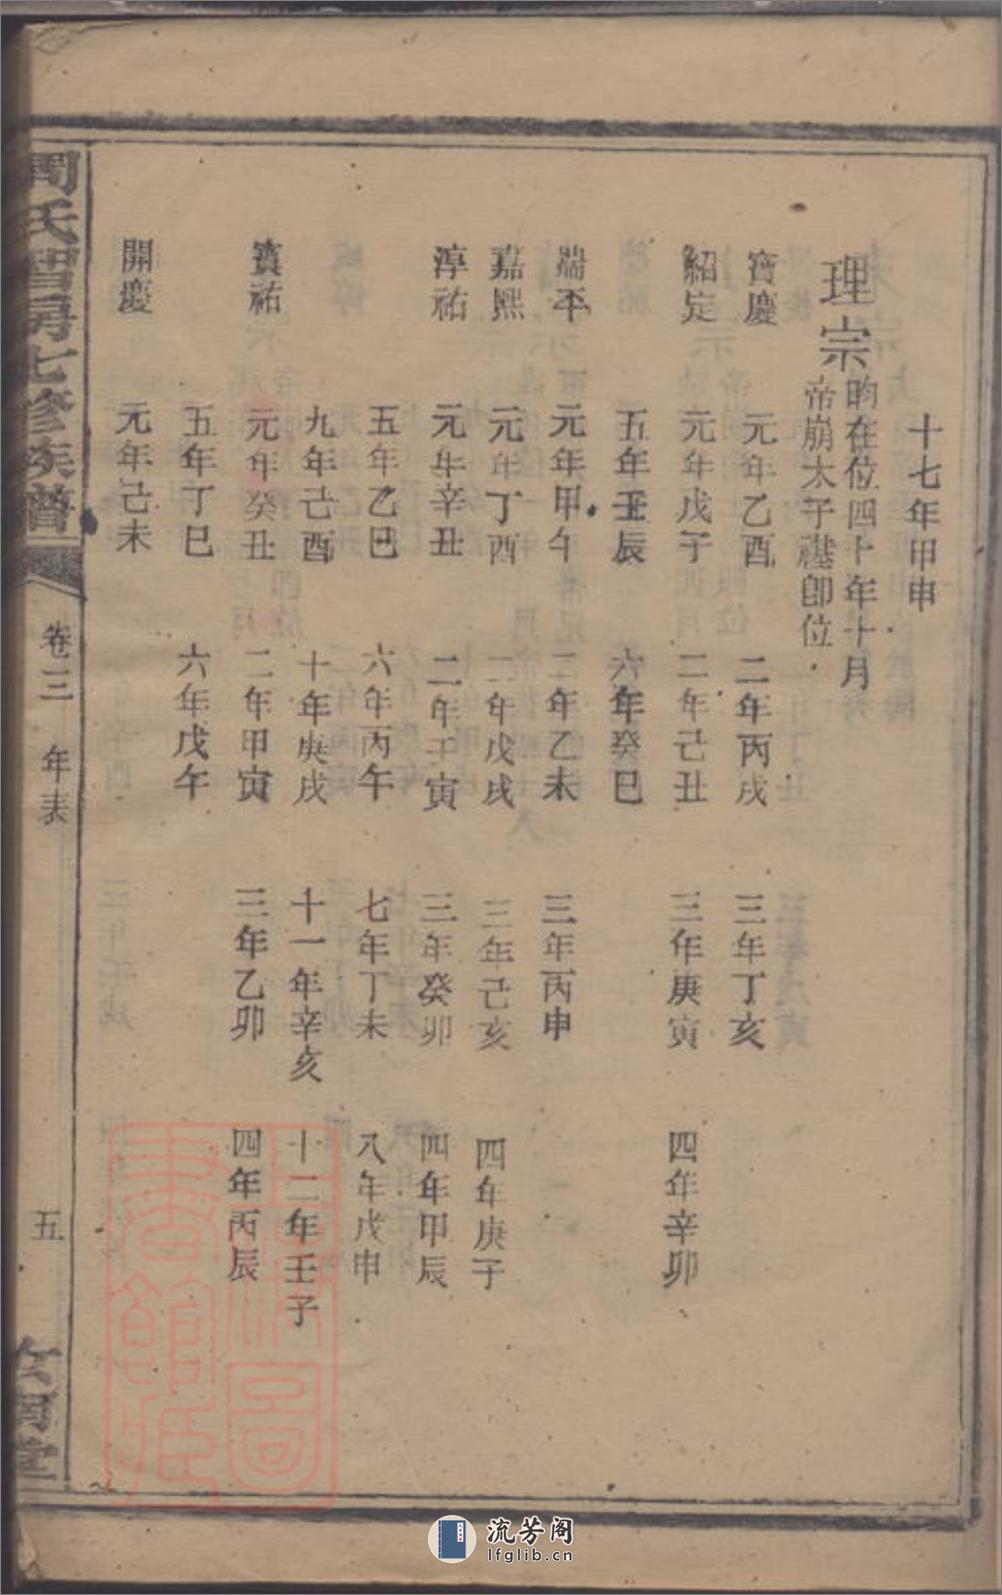 十七年甲申
理宗 昀在位四十年十月
帝崩太子禥卽位
寶慶 元年乙酉 二年丙戌 三年丁亥
紹定 元年戊子 二年己丑 三年庚寅 四年辛卯
五年壬辰 六年癸巳
端平 元年甲午 二年乙未 三年丙申
嘉熙 元年丁酉 二年戊戌 三年己亥 四年庚子
淳祐 元年辛丑 二年壬寅 三年癸卯 四年甲辰
五年乙巳 六年丙午 七年丁未 八年戊申
九年己酉 十年庚戌 十一年辛亥 十二年壬子
寳祐 元年癸丑 二年甲寅 三年乙卯 四年丙辰
五年丁巳 六年戊午
開慶 元年己未
周氏智房七修族譜 卷三 年表 五
上海圖書館藏
流芳阁
lfglib.cn